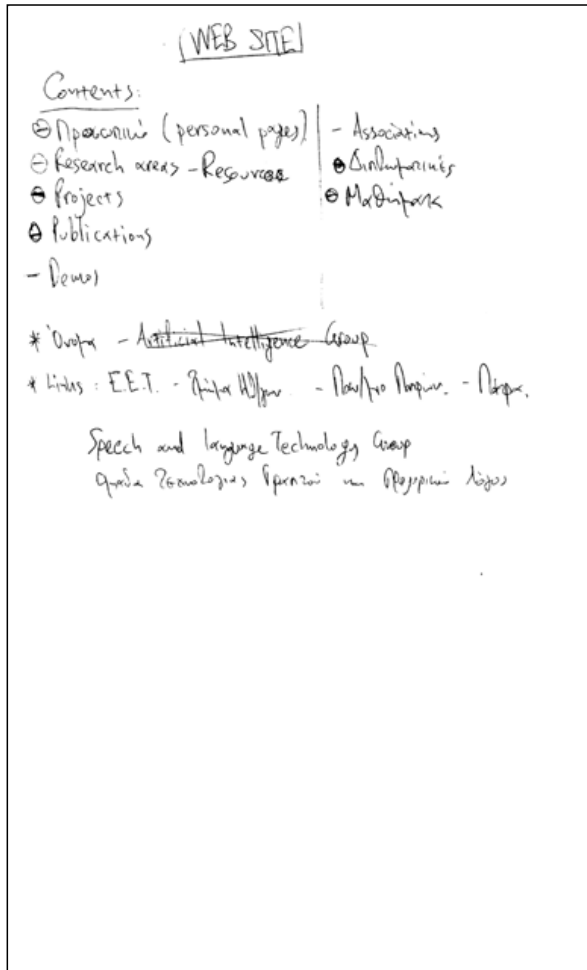 WEB SITE
Contents:
Προσωπικό (personal pages)
Research areas - Resources
Projects
Publications
- Demos
- Associations
Διπλωματικές
Μαθήματα
* Όνομα - Artificial Intelligence Group
* Links: E.E.T. - Τμήμα - Παν/μιο Πατρών. - Πάτρα.
Speech and language Technology Group
Ομάδα Τεχνολογίας Γραπτού και Προφορικού Λόγου